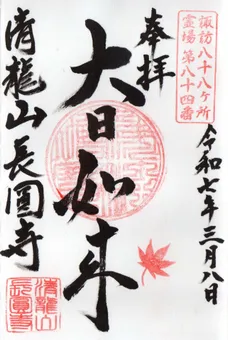 諏訪八十八ヶ所
霊場第八十四番
奉拝
令和七年三月八日
大日如来
清龍山長圓寺
清龍山
長圓寺